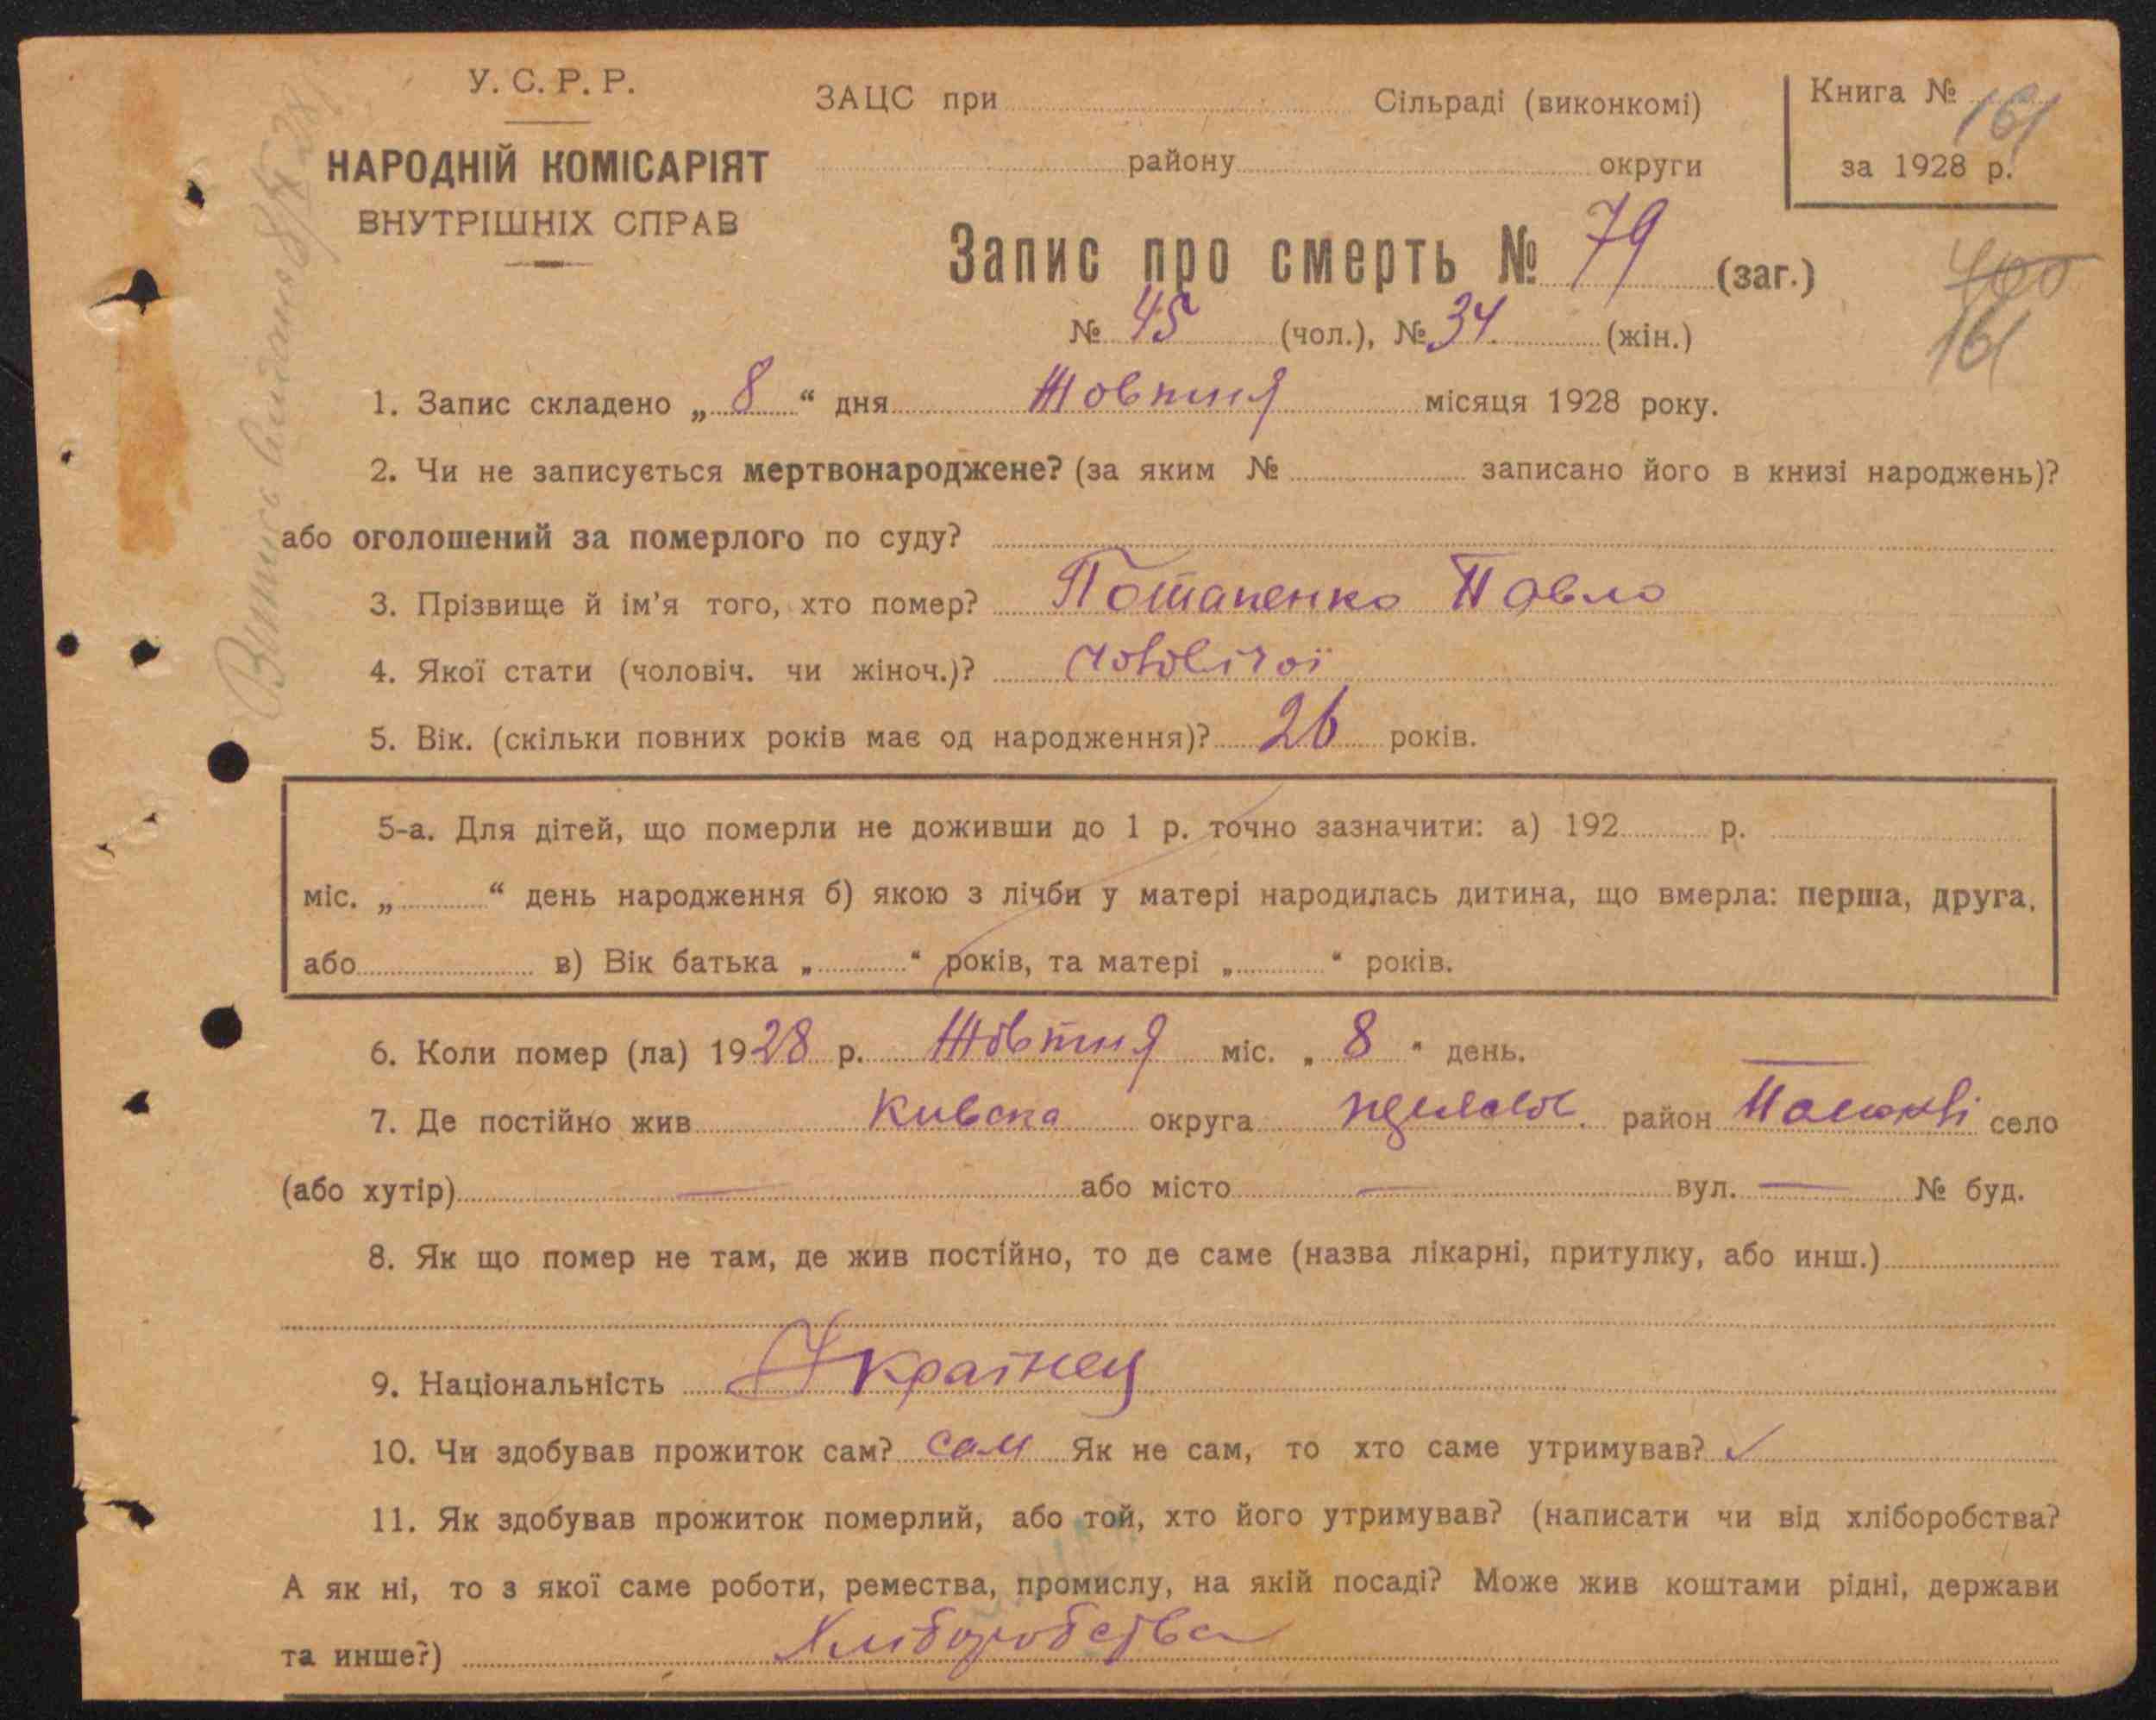 У. С. Р. Р.
НАРОДНІЙ КОМІСАРІЯТ
ВНУТРІШНІХ СПРАВ
ЗАЦС при Сільраді (виконкомі)
району округи
Книга № 161
за 1928 р.
Запис про смерть № 79 (заг.)
400
№ 45 (чол.), № 34. (жін.)
161
1. Запис складено „ 8 “ дня Жовтня місяця 1928 року.
2. Чи не записується мертвонароджене? (за яким № записано його в книзі народжень)?
або оголошений за померлого по суду?
3. Прізвище й ім’я того, хто помер? Потапенко Павло
4. Якої стати (чоловіч. чи жіноч.)? чоловічої
5. Вік. (скільки повних років має од народження)? 26 років.
5-а. Для дітей, що померли не доживши до 1 р. точно зазначити: а) 192 р.
міс. „ “ день народження б) якою з лічби у матері народилась дитина, що вмерла: перша, друга,
або в) Вік батька „ “ років, та матері „ “ років.
6. Коли помер (ла) 1928 р. Жовтня міс. „ 8 “ день.
7. Де постійно жив Кивска округа район село
(або хутір) — або місто — вул. — № буд.
8. Як що помер не там, де жив постійно, то де саме (назва лікарні, притулку, або инш.)
9. Національність Українец
10. Чи здобував прожиток сам? сам Як не сам, то хто саме утримував? ✓
11. Як здобував прожиток померлий, або той, хто його утримував? (написати чи від хліборобства?
А як ні, то з якої саме роботи, ремества, промислу, на якій посаді? Може жив коштами рідні, держави
та инше?) Хліборобства